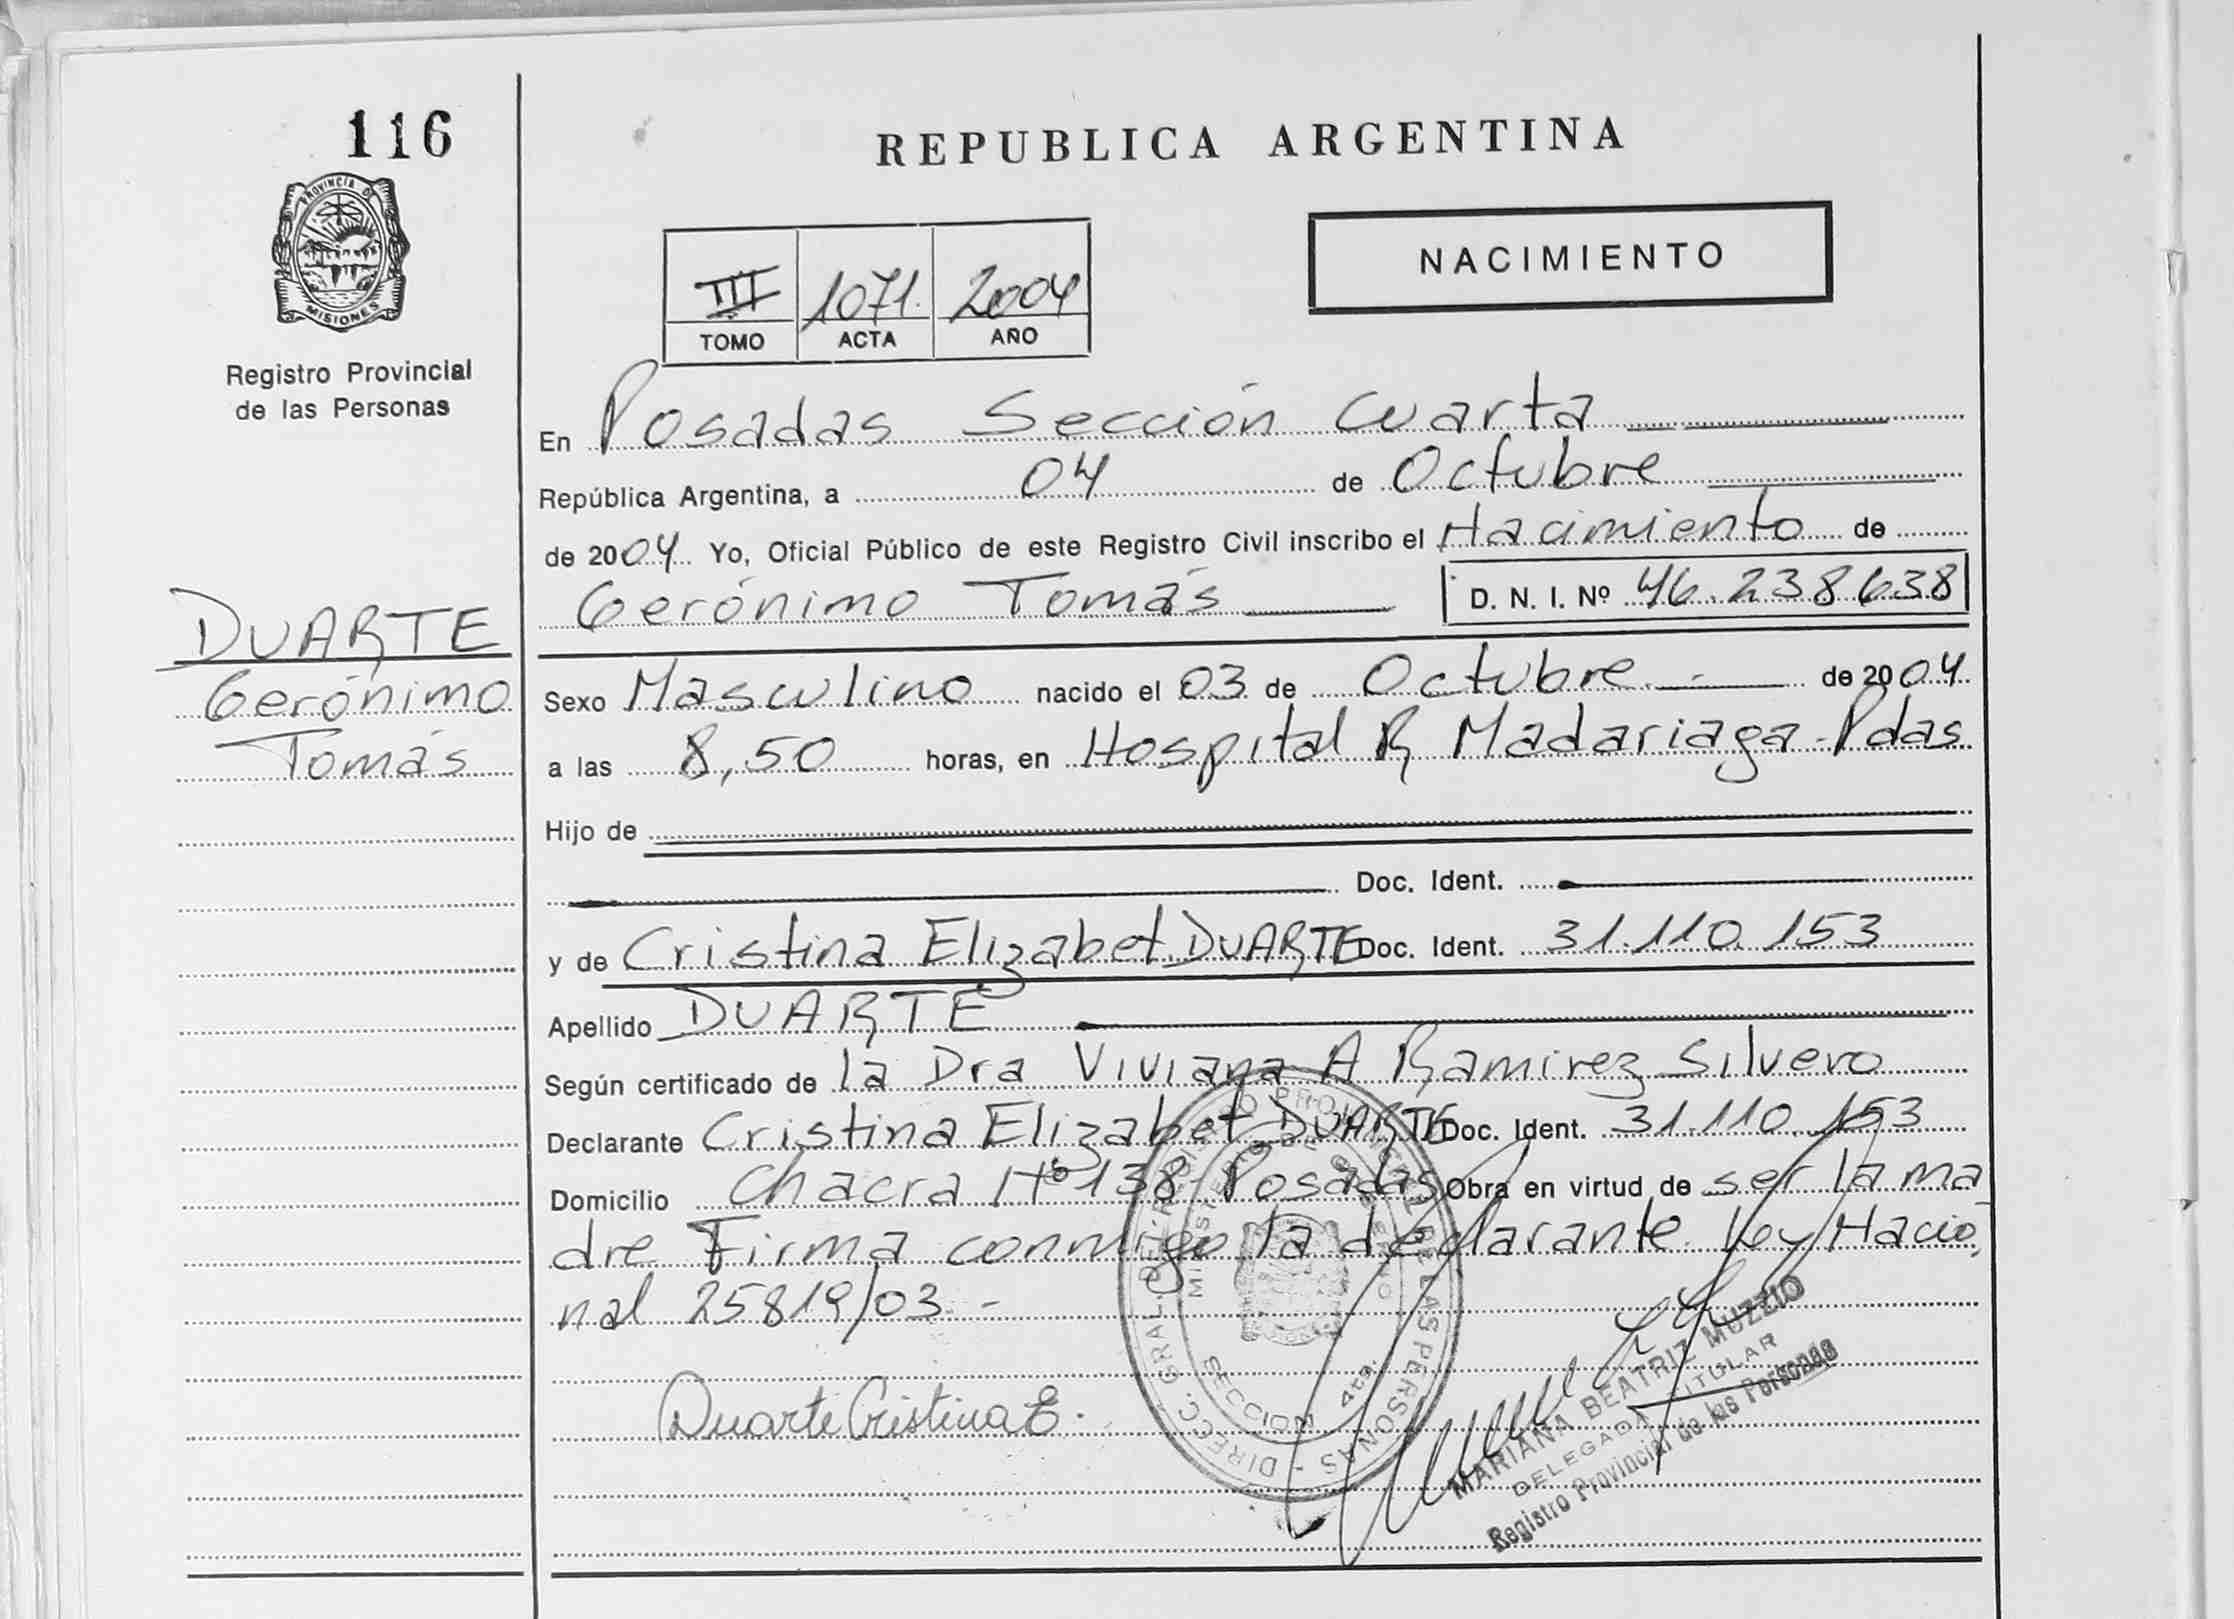 116
PROVINCIA D
MISIONES
Registro Provincial
de las Personas
DUARTE
Gerónimo
Tomás
REPUBLICA ARGENTINA
NACIMIENTO
III 1071. 2004
TOMO ACTA AÑO
En Posadas Sección Cuarta
República Argentina, a 04 de Octubre
de 2004 Yo, Oficial Público de este Registro Civil inscribo el Nacimiento de
Gerónimo Tomás D. N. I. Nº 46.238638
Sexo Masculino nacido el 03 de Octubre.- de 2004
a las 8,50 horas, en Hospital R Madariaga-Pdas
Hijo de
Doc. Ident.
y de Cristina Elizabet DUARTE Doc. Ident. 31.110.153
Apellido DUARTE
Según certificado de la Dra Viviana A Ramirez Silvero
Declarante Cristina Elizabet DUARTE Doc. Ident. 31.110.153
Domicilio Chacra Nº 138-Posadas Obra en virtud de ser la ma
dre Firma conmigo la declarante Ley Nacio
nal 25819/03.-
Duarte Cristina E.
DIRECC. GRAL. DEL REGISTRO PROVINCIAL DE LAS PERSONAS -
MINISTERIO DE GOBIERNO
SECCION 4ta.
MARIANA BEATRIZ MUZZIO
DELEGADA TITULAR
Registro Provincial de las Personas